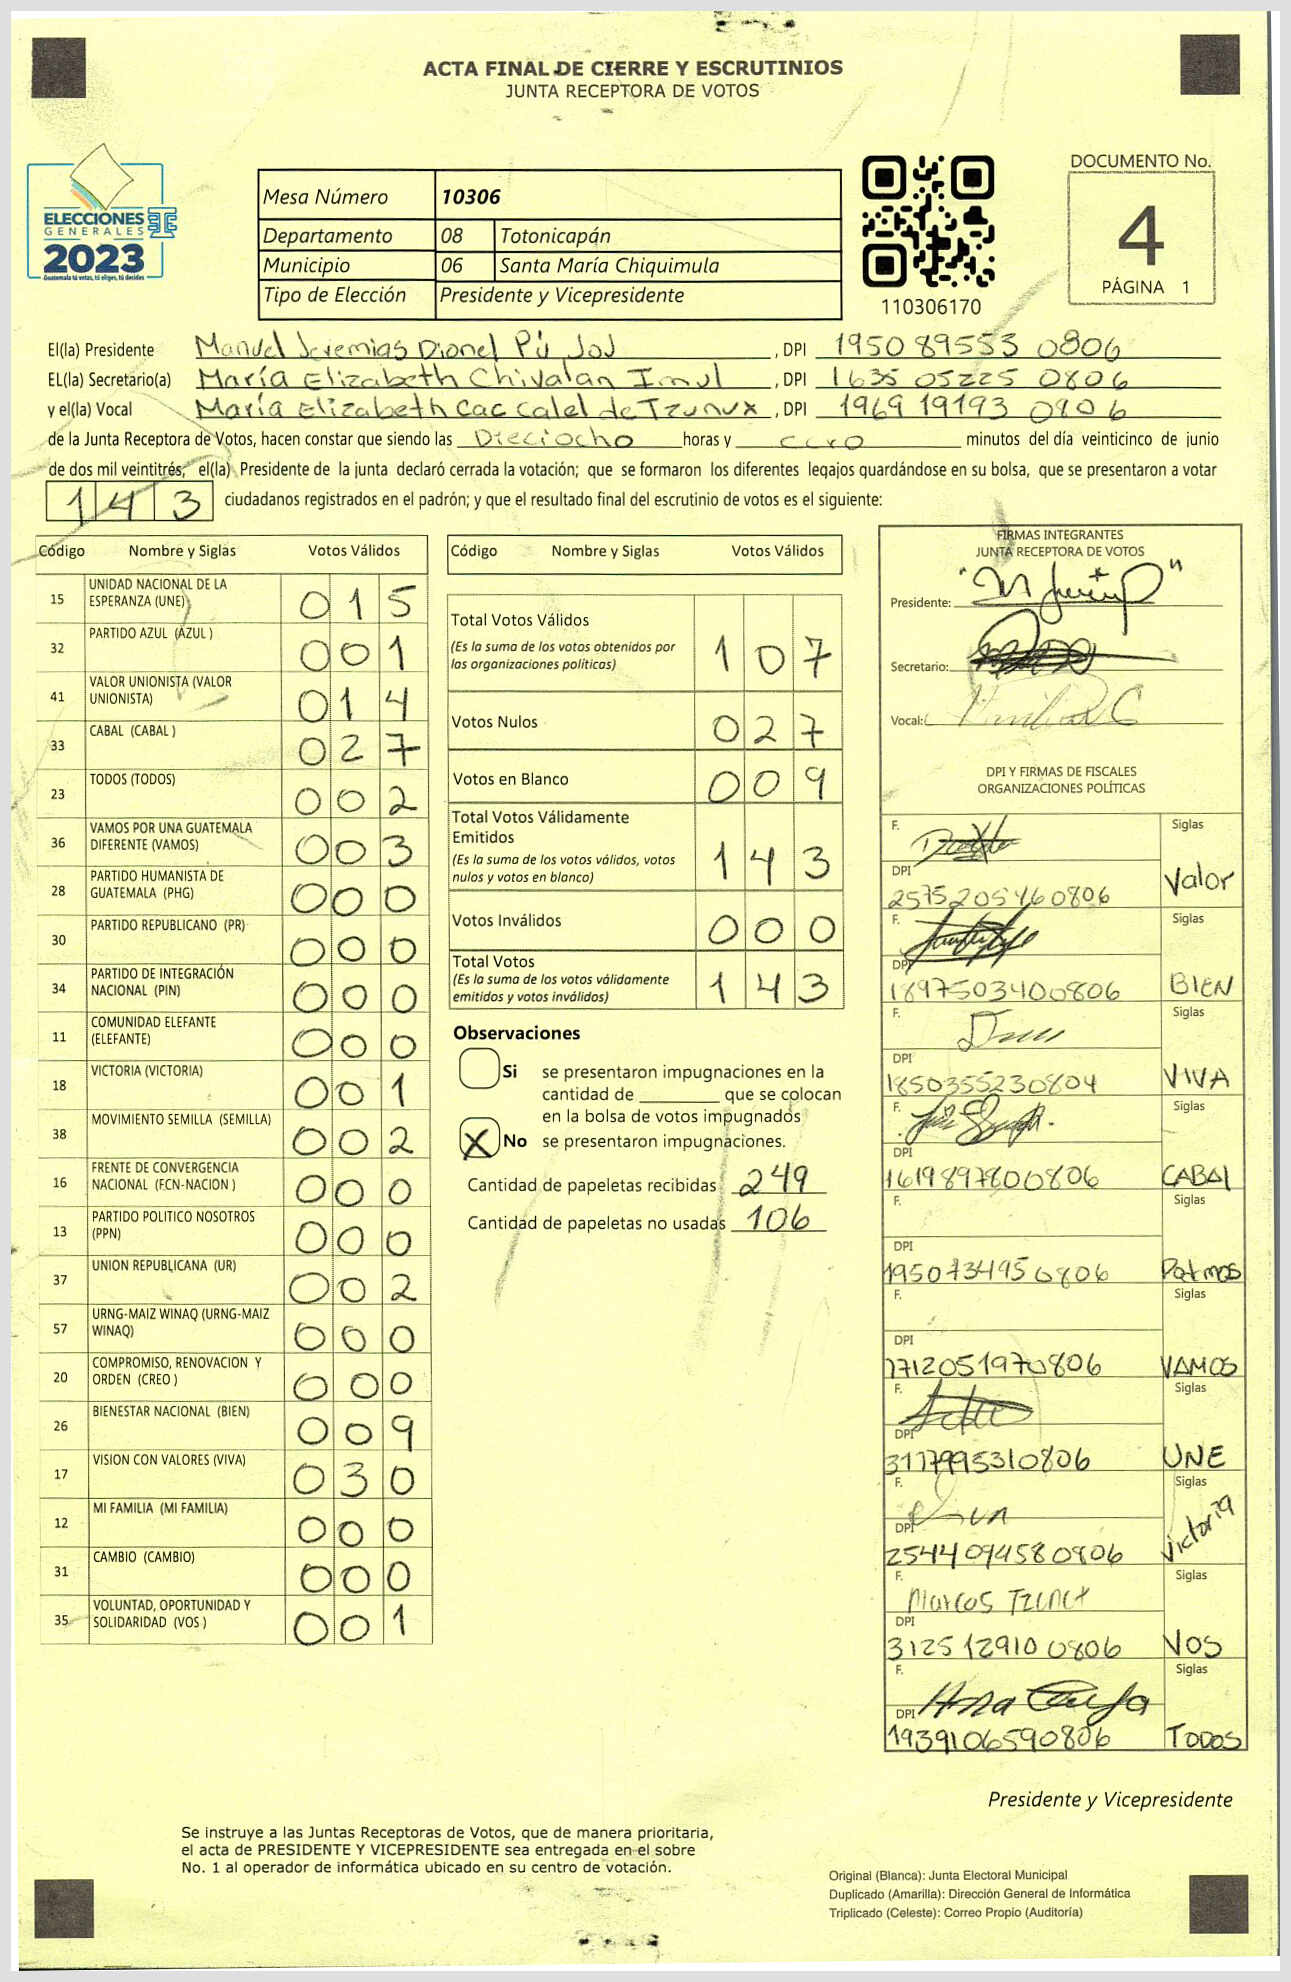 ACTA FINAL DE CIERRE Y ESCRUTINIOS
JUNTA RECEPTORA DE VOTOS
ELECCIONES
GENERALES
2023
Guatemala tú votas, tú eliges, tú decides
Mesa Número 10306
Departamento 08 Totonicapán
Municipio 06 Santa María Chiquimula
Tipo de Elección Presidente y Vicepresidente
110306170
DOCUMENTO No.
4
PÁGINA 1
El(la) Presidente Manuel Jeremias Dionel Pú Joj , DPI 1950 89553 0806
EL(la) Secretario(a) María Elizabeth Chivalan Imul , DPI 1635 05225 0806
y el(la) Vocal María Elizabeth Cac Calel de Tzunux , DPI 1969 19193 0806
de la Junta Receptora de Votos, hacen constar que siendo las Dieciocho horas y cero minutos del día veinticinco de junio
de dos mil veintitrés, el(la) Presidente de la junta declaró cerrada la votación; que se formaron los diferentes legajos guardándose en su bolsa, que se presentaron a votar
143 ciudadanos registrados en el padrón; y que el resultado final del escrutinio de votos es el siguiente:
Código Nombre y Siglas Votos Válidos
15 UNIDAD NACIONAL DE LA ESPERANZA (UNE) 015
32 PARTIDO AZUL (AZUL ) 001
41 VALOR UNIONISTA (VALOR UNIONISTA) 014
33 CABAL (CABAL ) 027
23 TODOS (TODOS) 002
36 VAMOS POR UNA GUATEMALA DIFERENTE (VAMOS) 003
28 PARTIDO HUMANISTA DE GUATEMALA (PHG) 000
30 PARTIDO REPUBLICANO (PR) 000
34 PARTIDO DE INTEGRACIÓN NACIONAL (PIN) 000
11 COMUNIDAD ELEFANTE (ELEFANTE) 000
18 VICTORIA (VICTORIA) 001
38 MOVIMIENTO SEMILLA (SEMILLA) 002
16 FRENTE DE CONVERGENCIA NACIONAL (FCN-NACION ) 000
13 PARTIDO POLITICO NOSOTROS (PPN) 000
37 UNION REPUBLICANA (UR) 002
57 URNG-MAIZ WINAQ (URNG-MAIZ WINAQ) 000
20 COMPROMISO, RENOVACION Y ORDEN (CREO ) 000
26 BIENESTAR NACIONAL (BIEN) 009
17 VISION CON VALORES (VIVA) 030
12 MI FAMILIA (MI FAMILIA) 000
31 CAMBIO (CAMBIO) 000
35 VOLUNTAD, OPORTUNIDAD Y SOLIDARIDAD (VOS ) 001
Código Nombre y Siglas Votos Válidos
Total Votos Válidos 107
(Es la suma de los votos obtenidos por
las organizaciones políticas)
Votos Nulos 027
Votos en Blanco 009
Total Votos Válidamente
Emitidos 143
(Es la suma de los votos válidos, votos
nulos y votos en blanco)
Votos Inválidos 000
Total Votos 143
(Es la suma de los votos válidamente
emitidos y votos inválidos)
Observaciones
Si se presentaron impugnaciones en la
cantidad de ________ que se colocan
en la bolsa de votos impugnados
X No se presentaron impugnaciones.
Cantidad de papeletas recibidas 249
Cantidad de papeletas no usadas 106
FIRMAS INTEGRANTES
JUNTA RECEPTORA DE VOTOS
Presidente:
Secretario:
Vocal:
DPI Y FIRMAS DE FISCALES
ORGANIZACIONES POLÍTICAS
F. Siglas
DPI
2575205460806 Valor
F. Siglas
DPI
1897503400806 BIEN
F. Siglas
DPI
1850355230804 VIVA
F. Siglas
DPI
1619897800806 CABAl
F. Siglas
DPI
1950734950806 Patmos
F. Siglas
DPI
1712051970806 VAMOS
F. Siglas
DPI
3117995310806 UNE
F. Siglas
DPI
2544094580806 Victoria
F. Marcos Siglas
DPI
312512910 0806 VOS
F. Siglas
DPI
1939106590806 TODOS
Presidente y Vicepresidente
Se instruye a las Juntas Receptoras de Votos, que de manera prioritaria,
el acta de PRESIDENTE Y VICEPRESIDENTE sea entregada en el sobre
No. 1 al operador de informática ubicado en su centro de votación.
Original (Blanca): Junta Electoral Municipal
Duplicado (Amarilla): Dirección General de Informática
Triplicado (Celeste): Correo Propio (Auditoría)